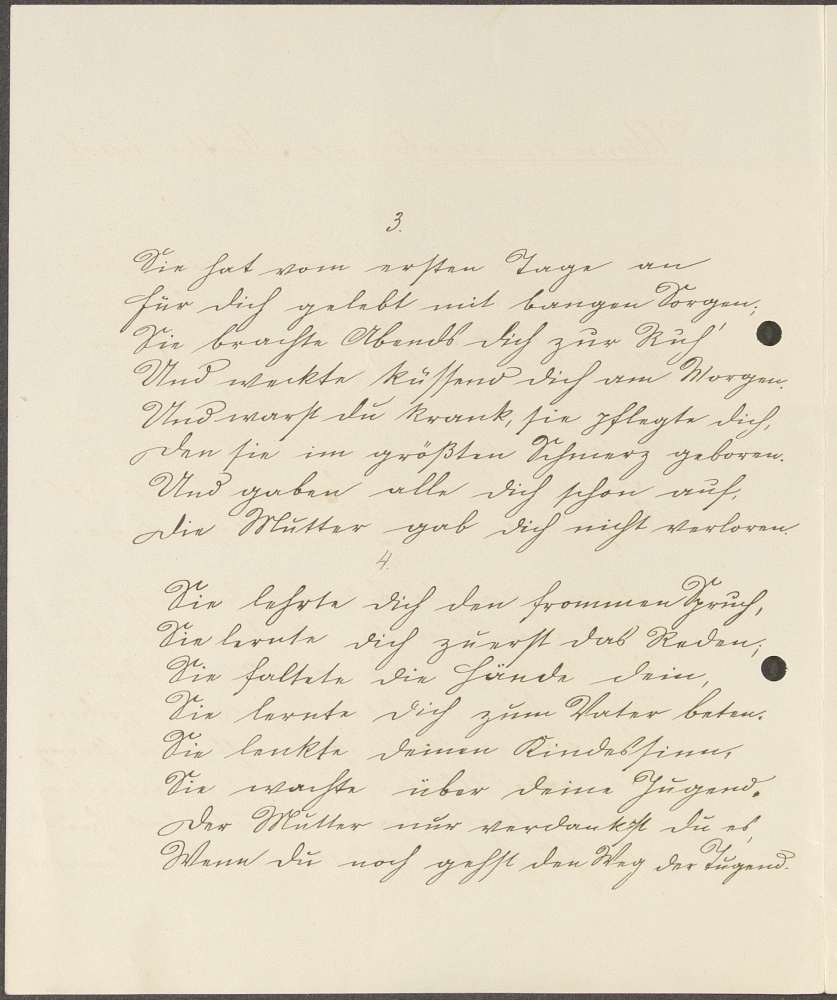 3.
Sie hat vom ersten Tage an
Für dich gelebt mit bangen Sorgen;
Sie brachte Abends dich zur Ruh'
Und weckte küssend dich am Morgen.
Und warst du krank, sie pflegte dich,
Den sie im größten Schmerz geboren.
Und gaben alle dich schon auf,
Die Mutter gab dich nicht verloren.
4.
Sie lehrte dich den frommen Spruch,
Sie lernte dich zuerst das Reden;
Sie faltete die Hände dein,
Sie lernte dich zum Vater beten.
Sie lenkte deinen Kindessinn,
Sie wachte über deine Jugend.
Der Mutter nur verdankst du es,
Wenn du noch gehst den Weg der Tugend.